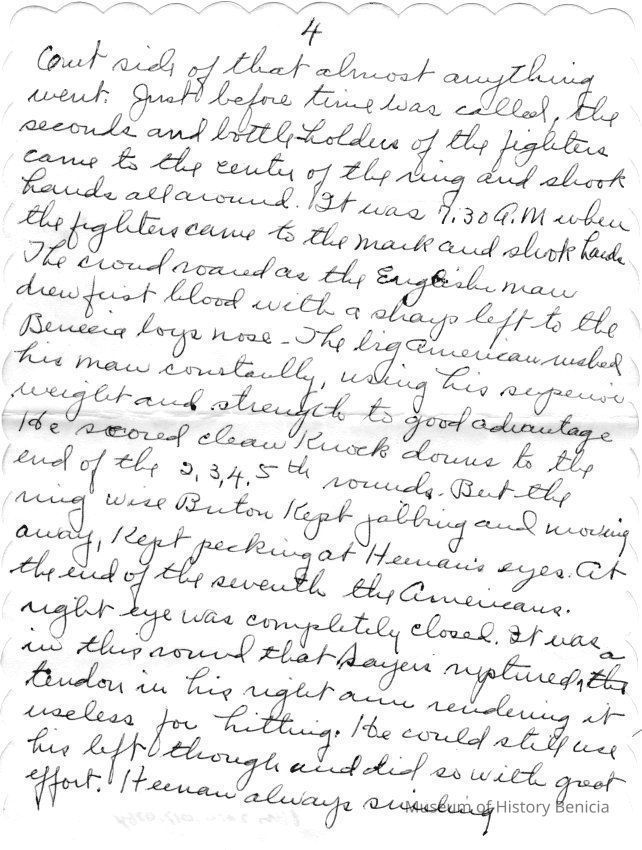 4
Out side of that almost anything
went. Just before time was called, the
seconds and bottle-holders of the fighters
came to the center of the ring and shook
hands all around. It was 7.30 A.M when
the fighters came to the mark and shook hands
The crowd roared as the English man
drew first blood with a sharp left to the
Benicia boys nose - The big american rushed
his man constantly, using his superior
weight and strength to good advantage
He scored clean Knock downs to the
end of the 2,3,4,5th rounds. But the
ring wise Briton Kept jabbing and moving
away, Kept pecking at Heenan's eyes. At
the end of the seventh the Americans.
right eye was completely closed. It was
in this round that Sayers ruptured a the
tendon in his right arm rendering it
useless for hitting. He could still use
his left though and did so with great
effort. Heenan always smiling
Museum of History Benicia